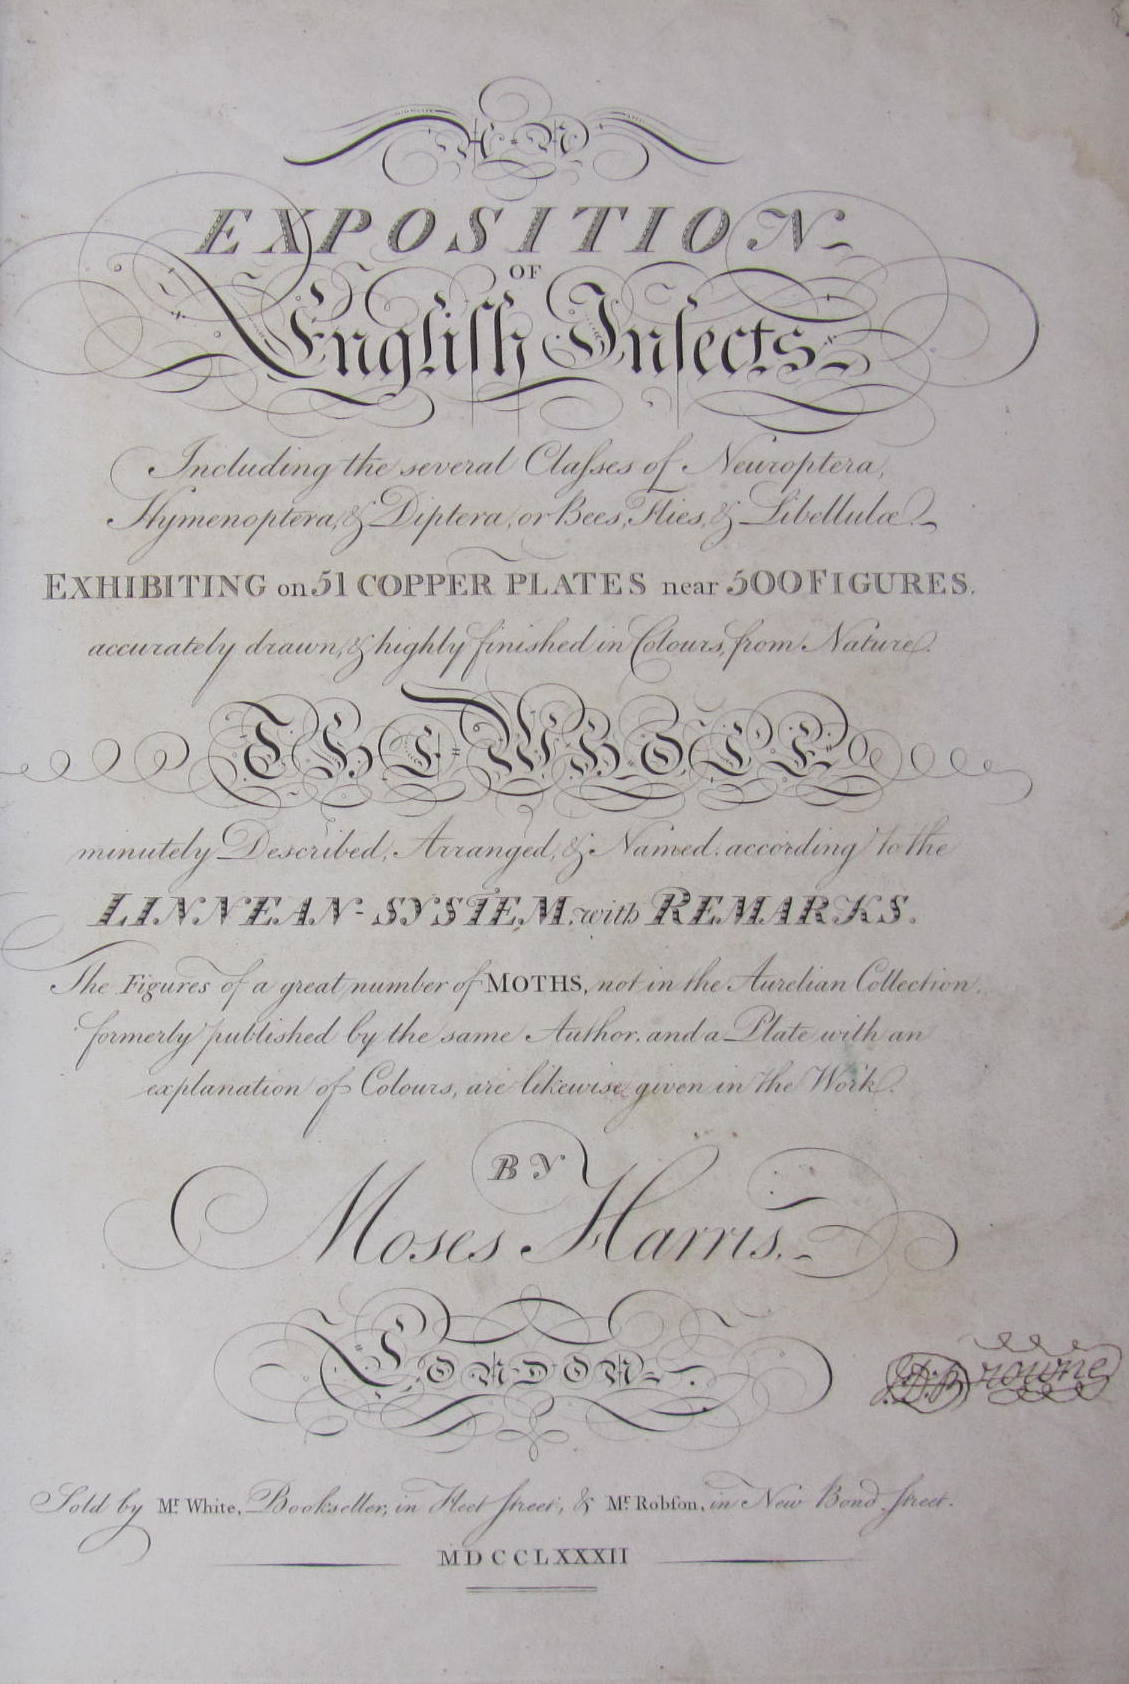 AN
EXPOSITION
OF
Engliſh Inſects
Including the several Claſses of Neuroptera,
Hymenoptera, & Diptera, or Bees, Flies, & Libellulæ.
EXHIBITING on 51 COPPER PLATES near 500 FIGURES.
accurately drawn, & highly finished in Colours, from Nature.
THE WHOLE
minutely Described, Arranged, & Named, according to the
LINNEAN-SYSTEM, with REMARKS.
The Figures of a great number of MOTHS, not in the Aurelian Collection,
formerly published by the same Author, and a Plate with an
explanation of Colours, are likewise given in the Work.
BY
Moses Harris.
LONDON.
J.D. Browne
Sold by Mr. White, Bookseller, in Fleet ſtreet, & Mr. Robſon, in New Bond ſtreet.
MDCCLXXXII